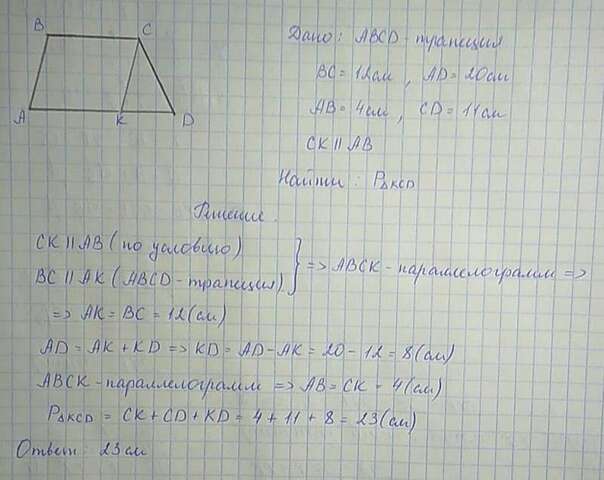 B C
A K D
Дано: ABCD - трапеция
BC = 12 см, AD = 20 см
AB = 4 см, CD = 11 см
CK || AB
Найти: P△KCD
Решение.
CK || AB (по условию)
BC || AK (ABCD - трапеция) } => ABCK - параллелограмм =>
=> AK = BC = 12 (см)
AD = AK + KD => KD = AD - AK = 20 - 12 = 8 (см)
ABCK - параллелограмм => AB = CK = 4 (см)
P△KCD = CK + CD + KD = 4 + 11 + 8 = 23 (см)
Ответ: 23 см